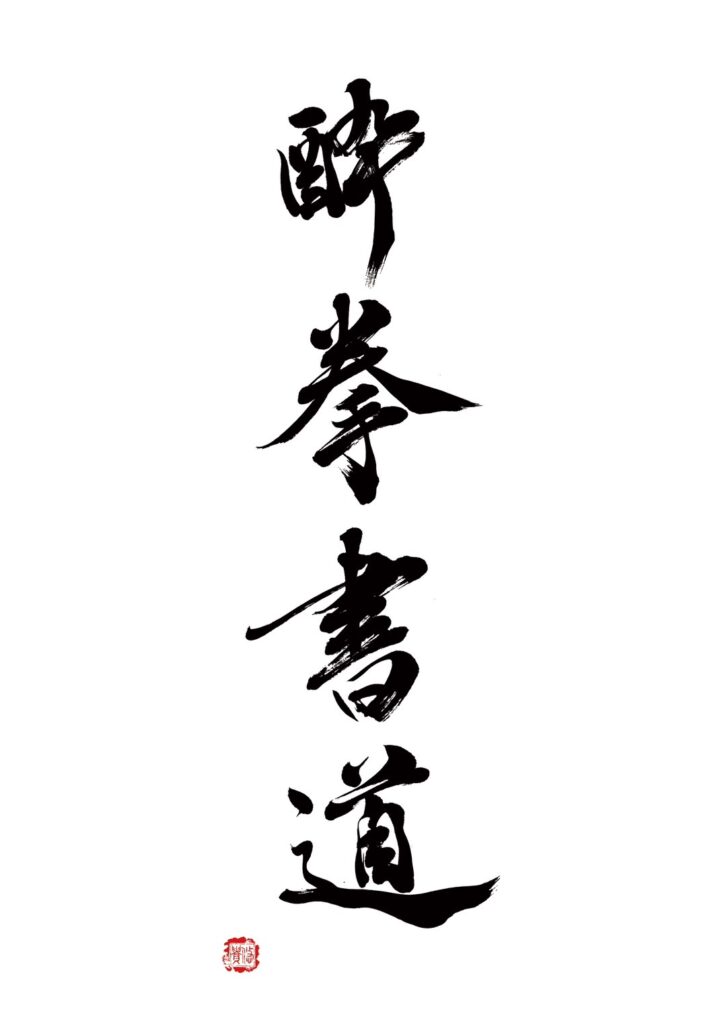 酔拳書道